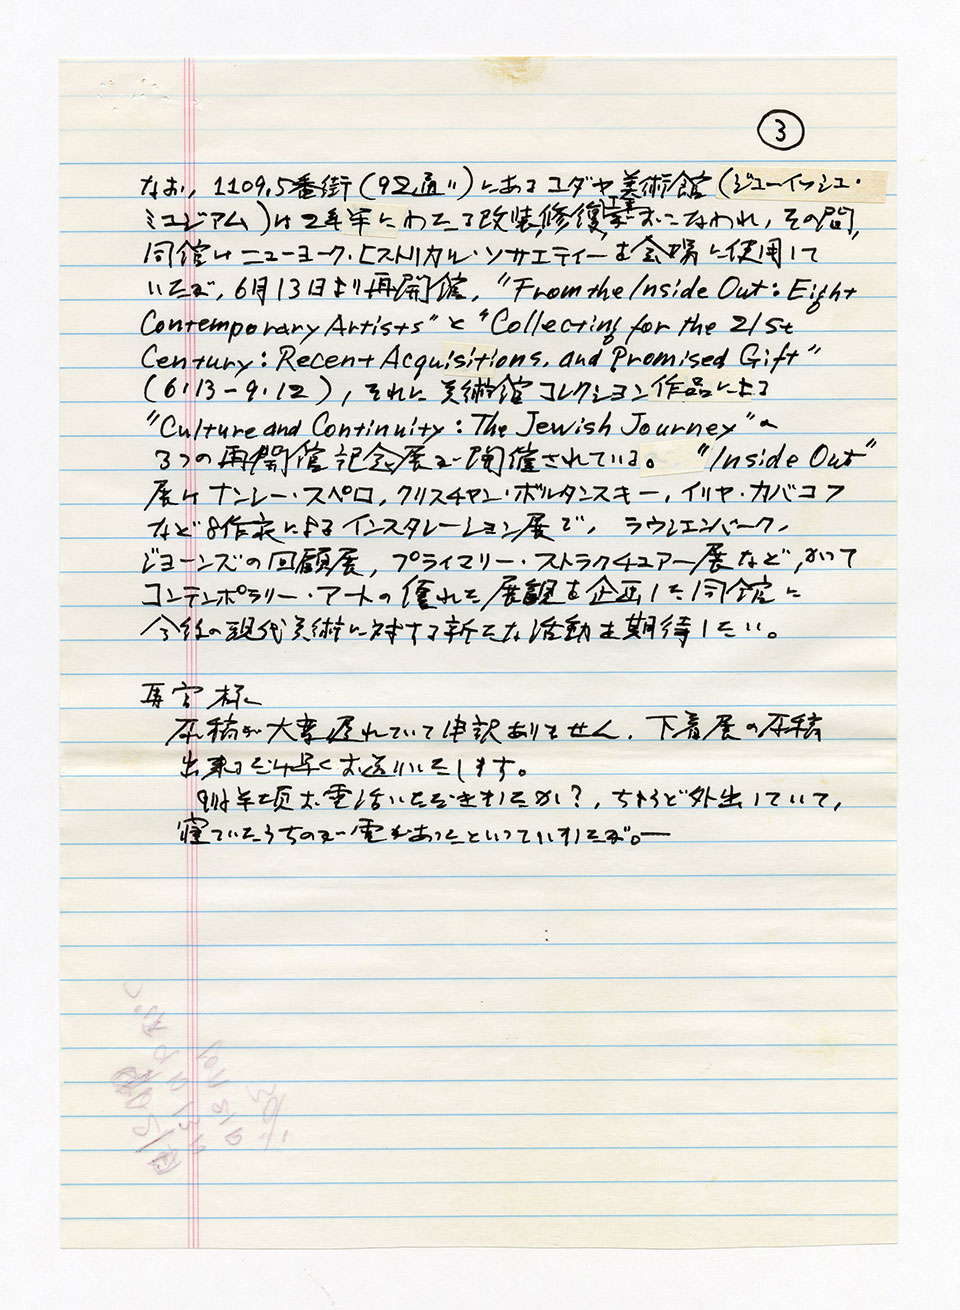 ③
なお, 1109.5番街(92通り)にあるユダヤ美術館(ジューイッシュ・
ミュジアム)は2年半にわたる改装,修復工事がおこなわれ, その間,
同館はニューヨーク・ヒストリカル・ソサエティーを会場に使用して
いたが, 6月13日より再開館, "From the Inside Out: Eight
Contemporary Artists"と"Collecting for the 21st
Century: Recent Acquisitions, and Promised Gift"
(6.13-9.12), それに美術館コレクション作品による
"Culture and Continuity: The Jewish Journey"の
3つの再開館記念展が開催されている。 "Inside Out"
展はナンシー・スペロ, クリスチャン・ボルタンスキー, イリヤ・カバコフ
など8作家によるインスタレーション展で, ラウシェンバーク,
ジョーンズの回顧展, プライマリー・ストラクチュアー展など, かつて
コンテンポラリー・アートの優れた展観を企画した同館に
今後の現代美術に対する新たな活動を期待したい。
様
原稿が大変遅れていて申訳ありません. 下着展の原稿
出来るだけ早くお送りいたします。
お電話いただきましたか?, ちょうど外出していて,
寝ていたうちのが電があったといっていましたが。—